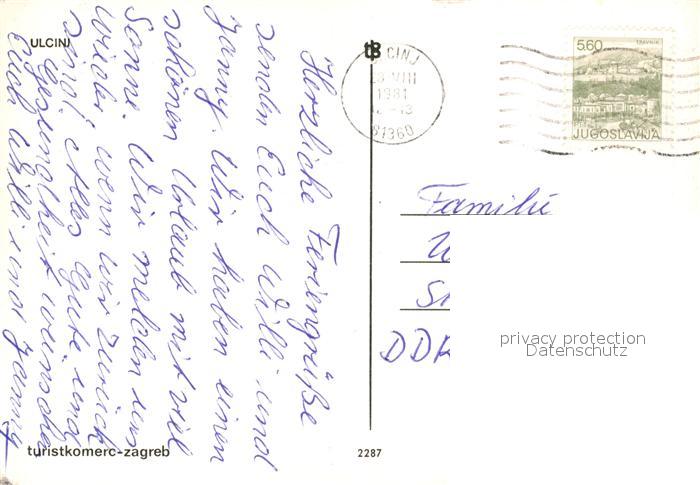 ULCINJ
Herzliche Feriengrüße
senden Euch Willi und
Janny. Wir haben einen
schönen Urlaub mit viel
Sonne. Wir melden uns
wieder, wenn wir zurück
sind. Alles Gute und
Gesundheit wünschen
Euch Willi und Janny
turistkomerc-zagreb
2287
ULCINJ
28 VIII
1981
-13
81360
5.60
TRAVNIK
JUGOSLAVIJA
Familie
DDR
privacy protection
Datenschutz